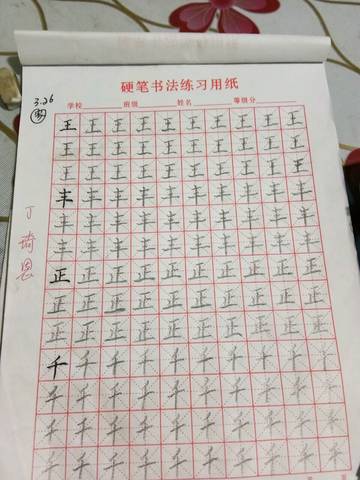 硬笔书法练习用纸
学校 班级 姓名 等级分
3.26
王王王王王王王王王王
王王王王王王王王王王
王王王王王王王王王王
丰丰丰丰丰丰丰丰丰丰
丰丰丰丰丰丰丰丰丰丰
丰丰丰丰丰丰丰丰丰丰
正正正正正正正正正正
正正正正正正正正正正
正正正正正正正正正正
千千千千千千千千千千
千千千千千千千千千千
千千千千千千千千千千
千千千千千千千千千千
丁
恩